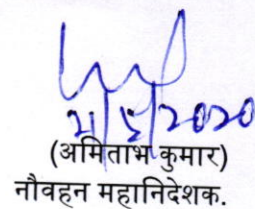 21/5/2020
(अमिताभ कुमार)
नौवहन महानिदेशक.